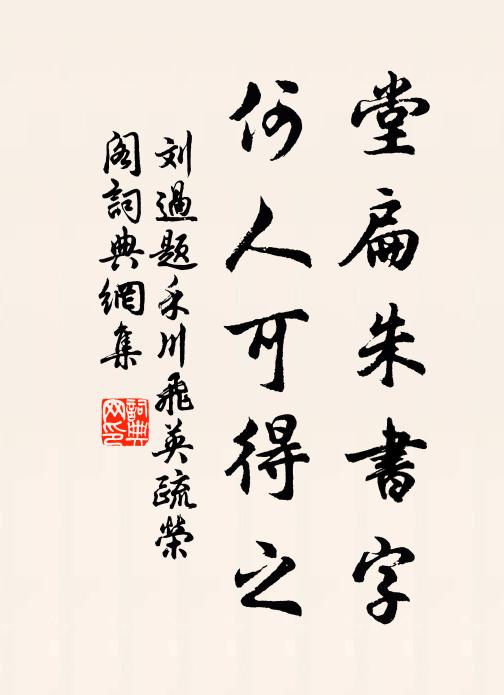 堂扁朱書字
何人可得之
刘過題禾川飛英疏榮
阁詞典網集
詞典網印